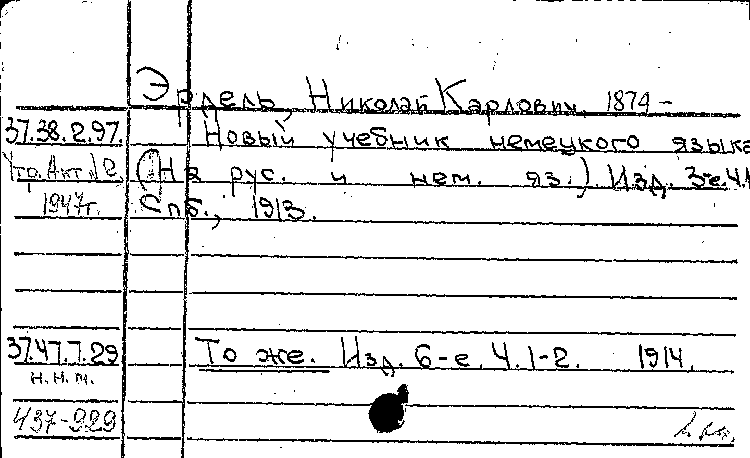 Эрдель, Николай Карлович, 1874-
37.38.2.97. Новый учебник немецкого языка
Утр. Акт №2. (На рус. и нем. яз.) Изд. 3-е. Ч.1
1947г. Спб., 1913.
37.47.7.29 То же. Изд. 6-е. Ч. 1-2. 1914.
н.н.т.
437-929